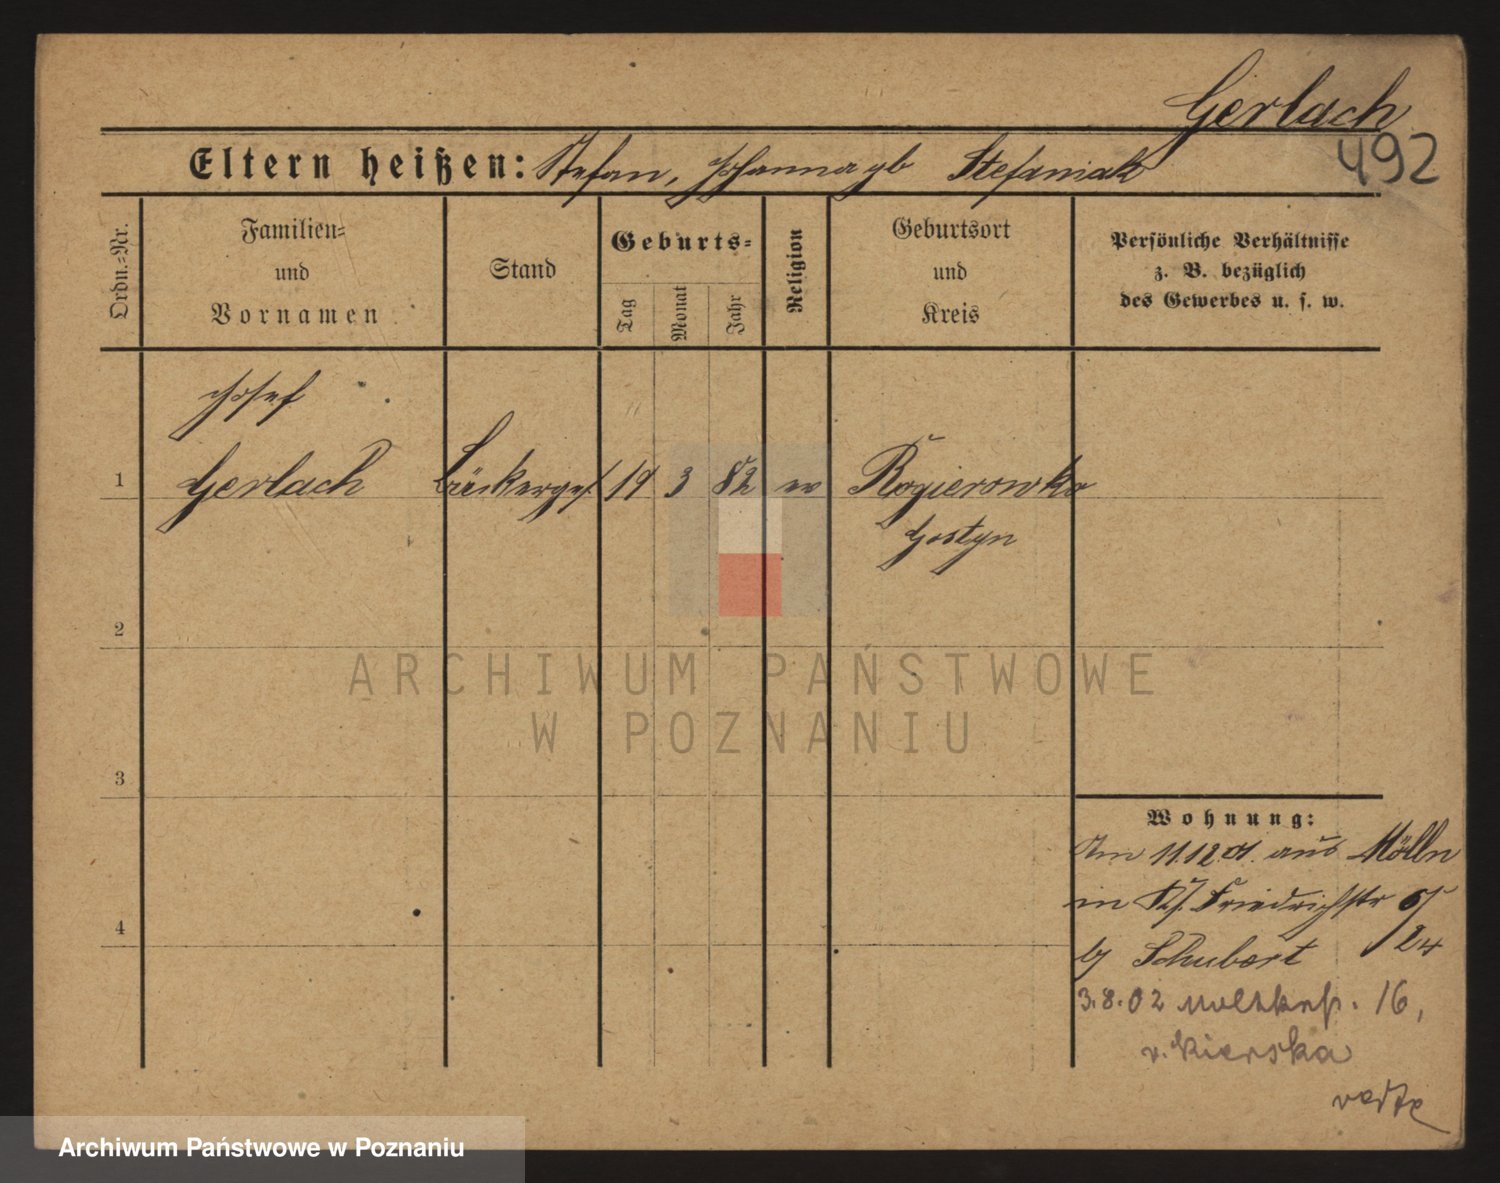 Gerlach
492
Eltern heißen: Stefan, Johanna gb Stefaniak
Ordn.=Nr.
Familien=
und
Vornamen
Stand
Geburts=
Tag
Monat
Jahr
Religion
Geburtsort
und
Kreis
Persönliche Verhältnisse
z. B. bezüglich
des Gewerbes u. s. w.
Josef
1 Gerlach Bäckerges 19 3 82 ev Rogierowko
Gostyn
2
3
4
Wohnung:
Am 11.12.01. aus Mölln
in Friedrichstr
by Schubert 24
3.8.02 16,
v. Kierska
ARCHIWUM PAŃSTWOWE
W POZNANIU
Archiwum Państwowe w Poznaniu